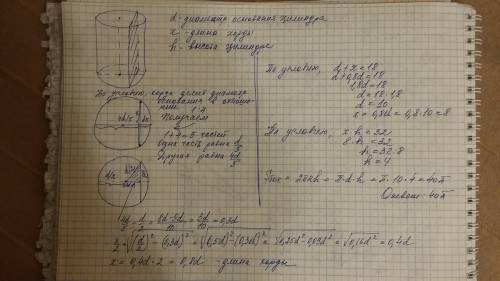 d - диаметр основания цилиндра
x - длина хорды
h - высота цилиндра
По условию, хорда делит диаметр
основания в отноше-
нии 1:4
Получаем
1+4=5 частей
одна часть равна d/5
Другая равна 4d/5
4d/5 - d/2 = (8d-5d)/10 = 3d/10 = 0,3d
x/2 = √((d/2)² - (0,3d)²) = √((0,5d)² - (0,3d)²) = √(0,25d² - 0,09d²) = √(0,16d²) = 0,4d
x = 0,4d · 2 = 0,8d - длина хорды
По условию, d + x = 18
d + 0,8d = 18
1,8d = 18
d = 18 : 1,8
d = 10
x = 0,8d = 0,8 · 10 = 8
По условию, x · h = 32
8 · h = 32
h = 32 : 8
h = 4
Sбок = 2πRh = π · d · h = π · 10 · 4 = 40π
Ответ: 40π